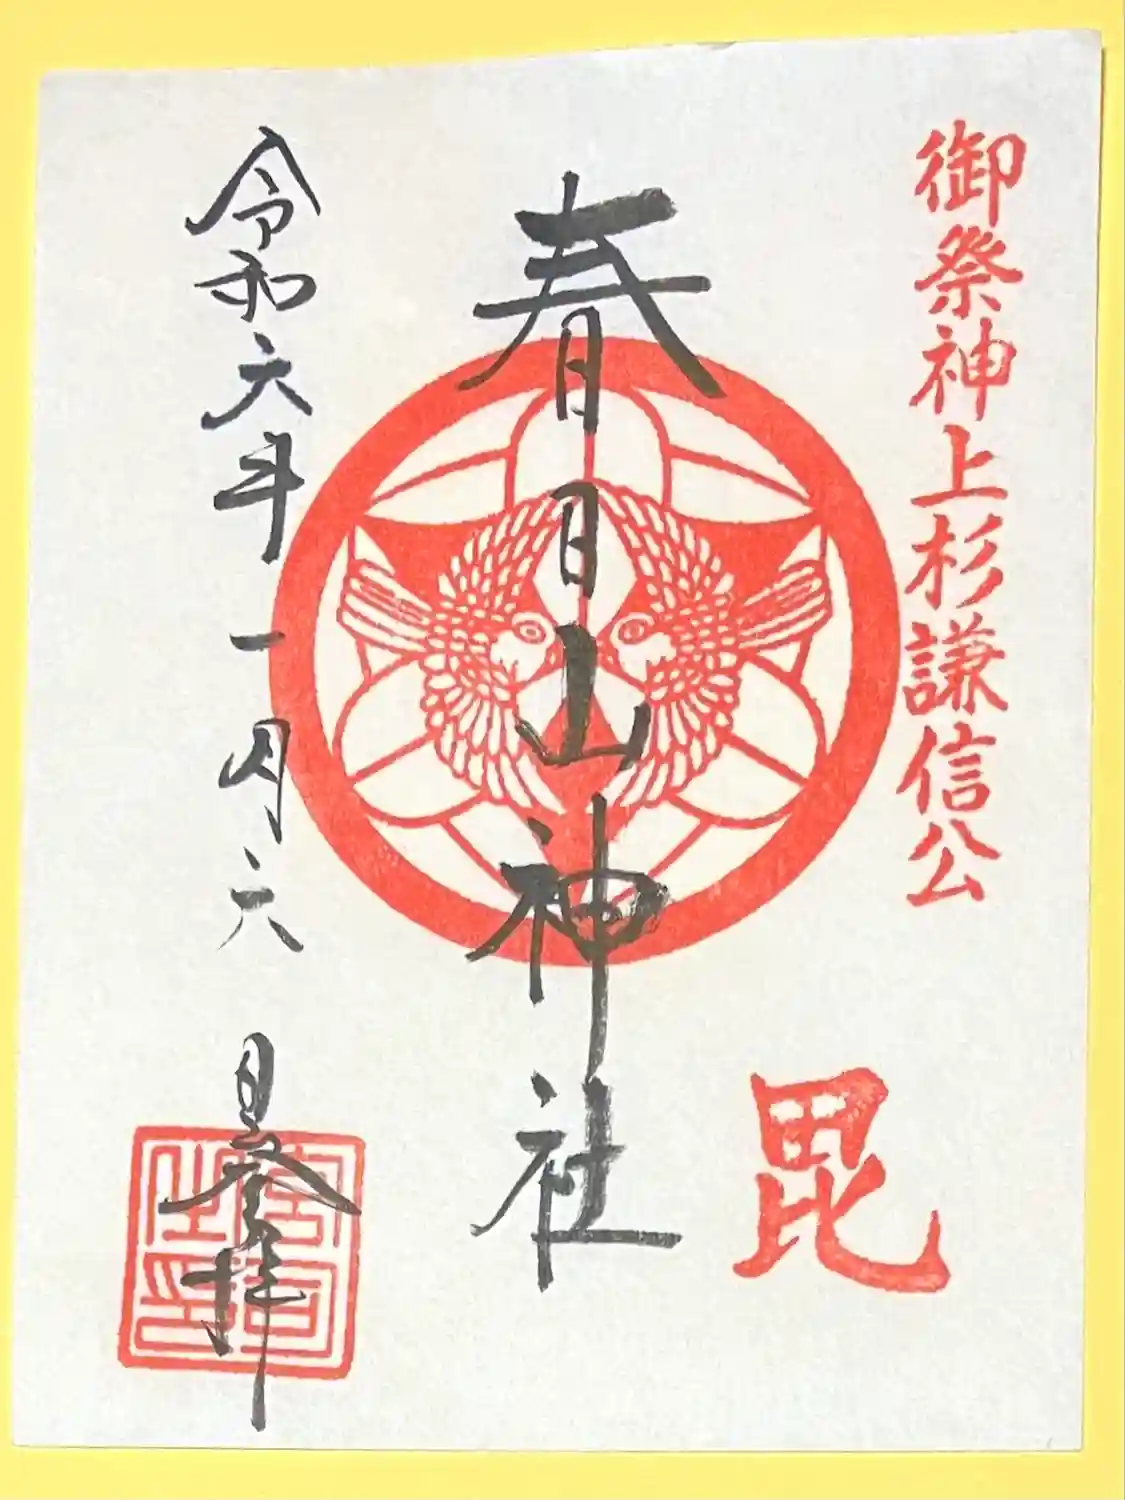 御祭神上杉謙信公
毘
春日山神社
令和六年一月六日参拝
宮司之印